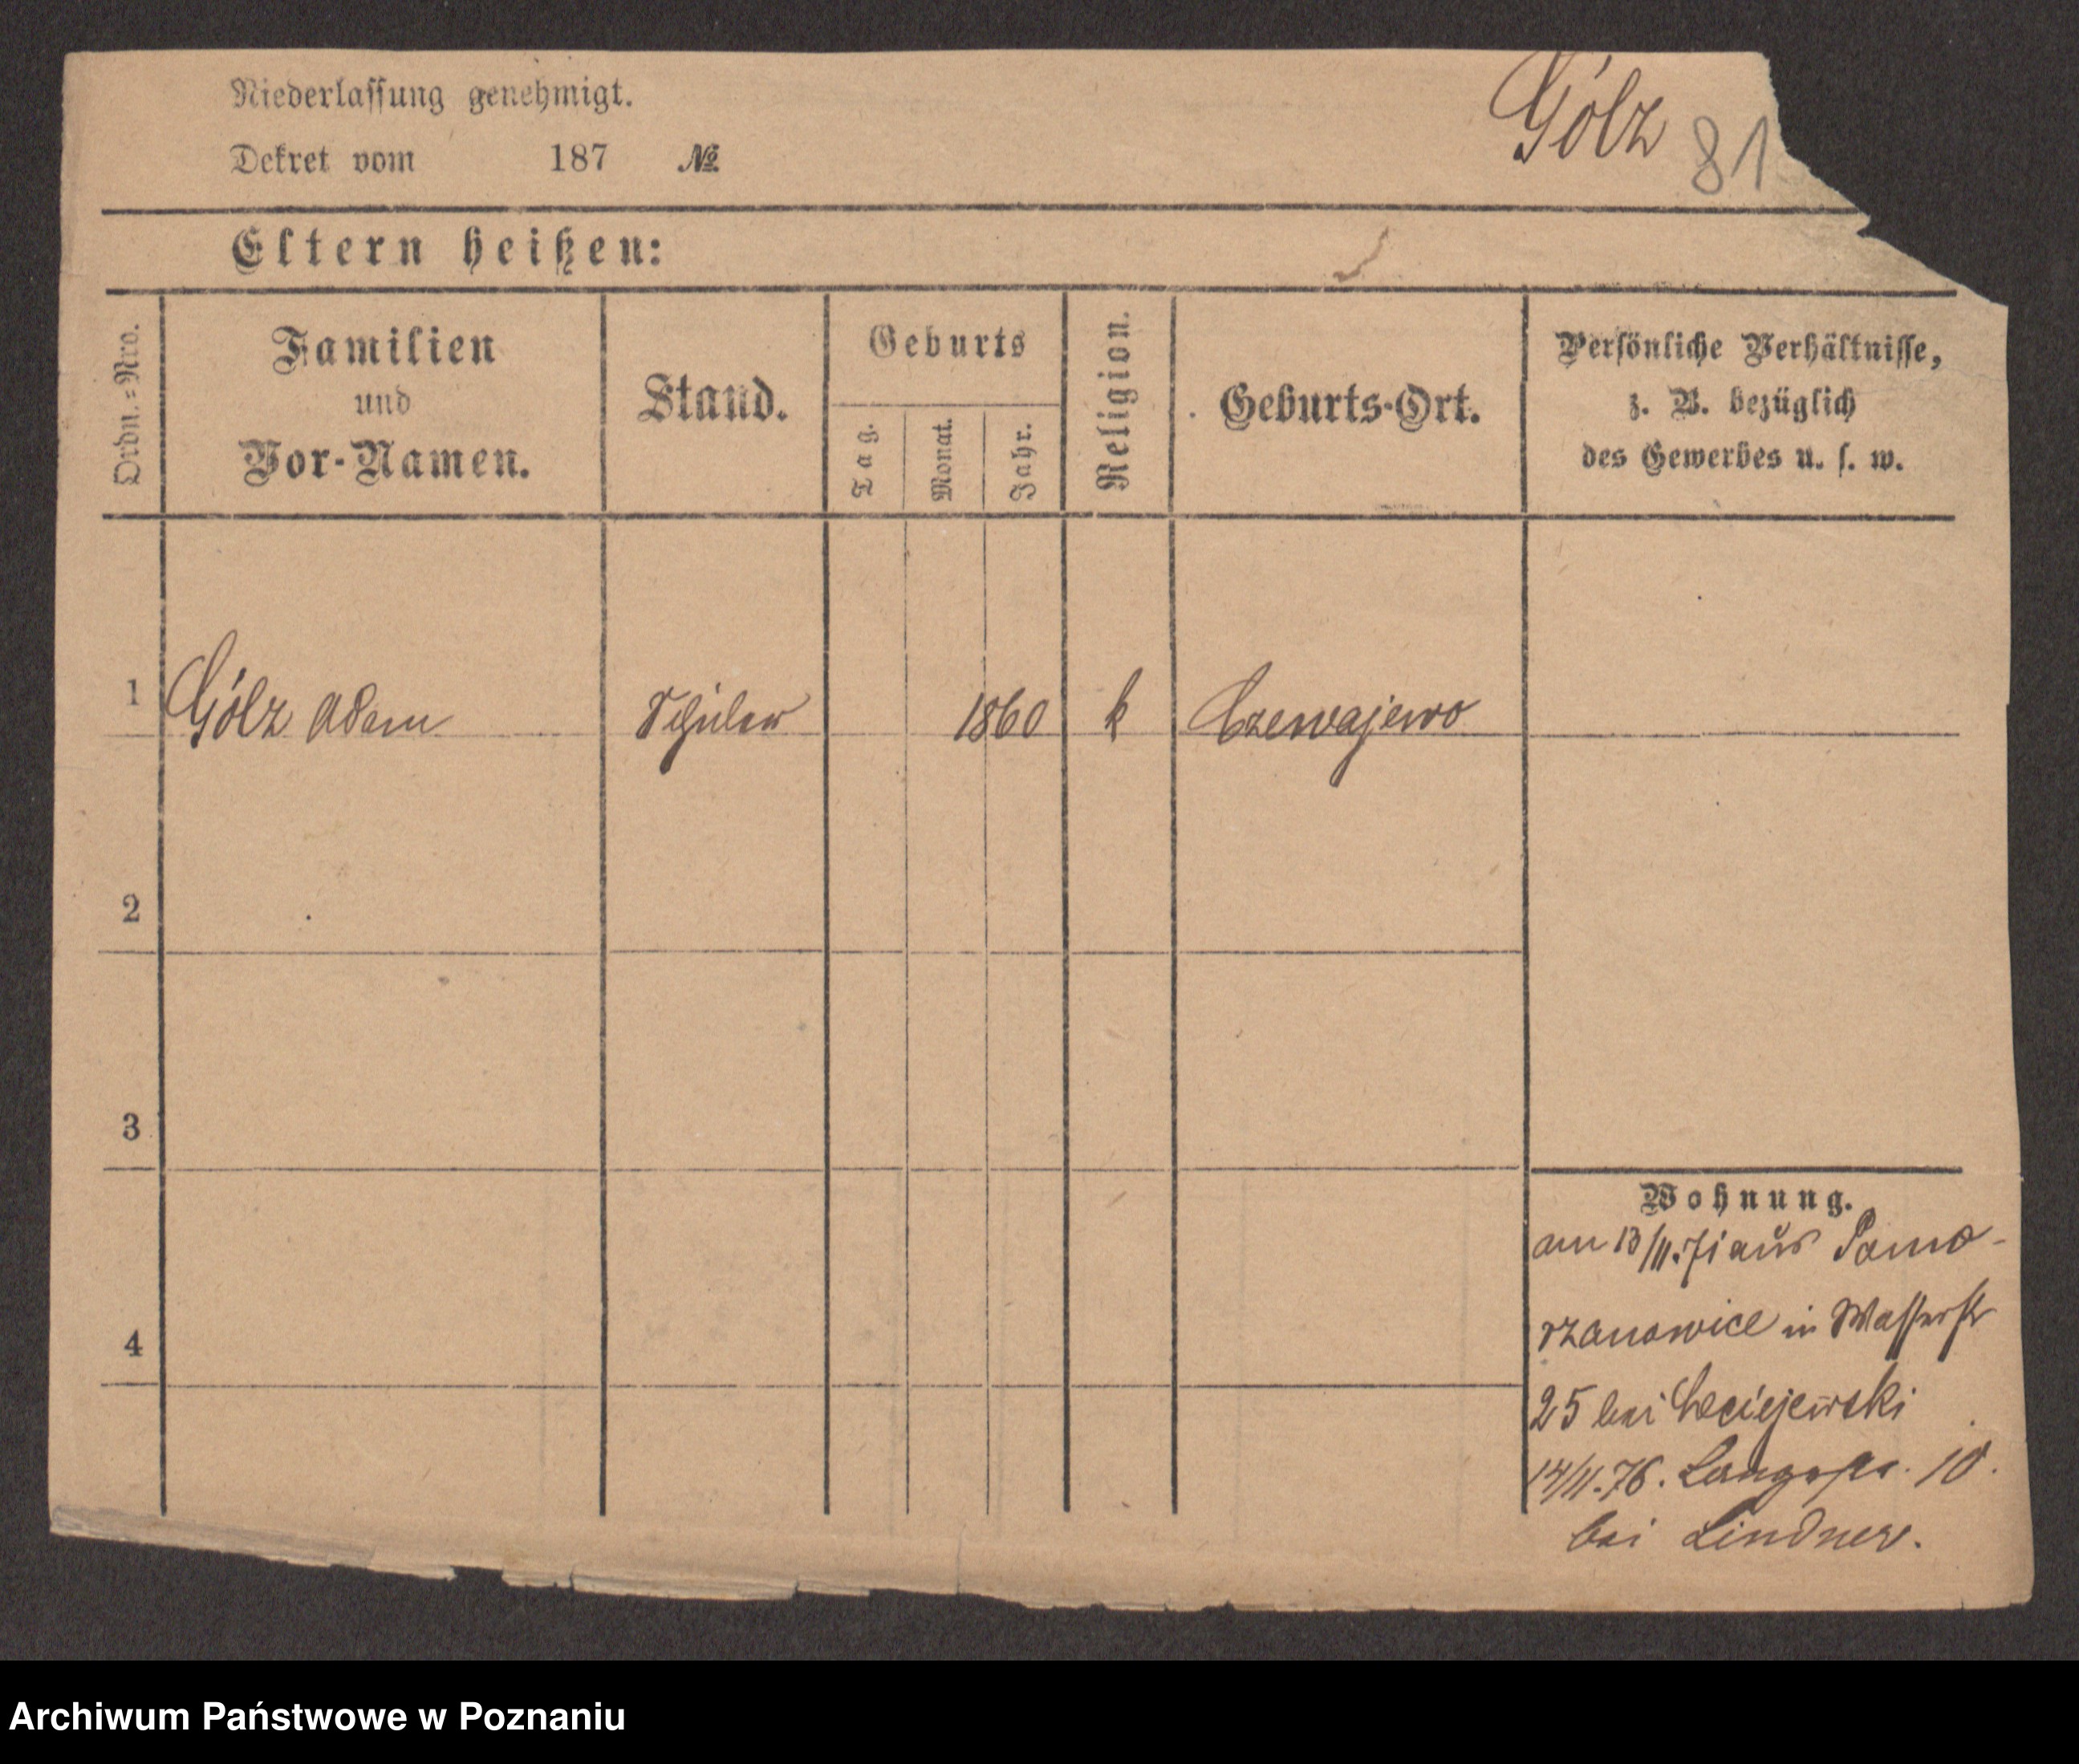 Niederlassung genehmigt.
Gólz 81
Dekret vom 187 №
Eltern heißen:
Ordn.=Nro.
Familien
und
Vor-Namen.
Stand.
Geburts
Tag.
Monat.
Jahr.
Religion.
Geburts-Ort.
Persönliche Verhältnisse,
z. B. bezüglich
des Gewerbes u. s. w.
1 Gólz Adam Schüler 1860 k Czewajewo
2
3
4
Wohnung.
am 13/11.71 aus Pomo-
rzanowice in Wasserstr
25 bei
14/11.76. Langestr. 10.
bei Lindner.
Archiwum Państwowe w Poznaniu